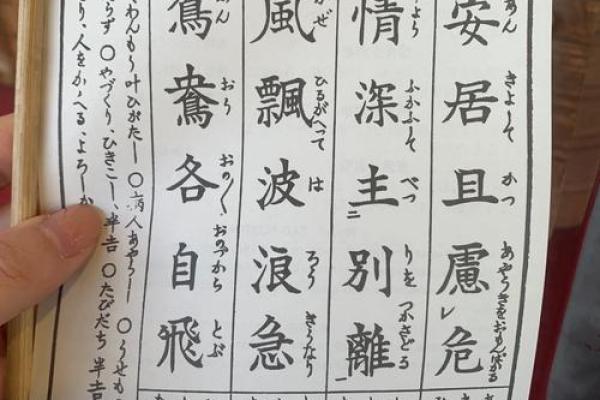 安居且慮レ危
あん きよして かつ あやうきをおもんぱかる
情深主二別離一
ふかふして べつ りを つかさどる
風飄波浪急
かぜ ひるがへって は ろう きうなり
鴛鴦各自飛
えん おう おの〱 おのづから とぶ
わんもう叶ひがたし ○病人あやうし ○うせもの
らず ○やづくり、ひきこし、半吉 ○たびだち 半吉
り、人をかゝへる、よろしか